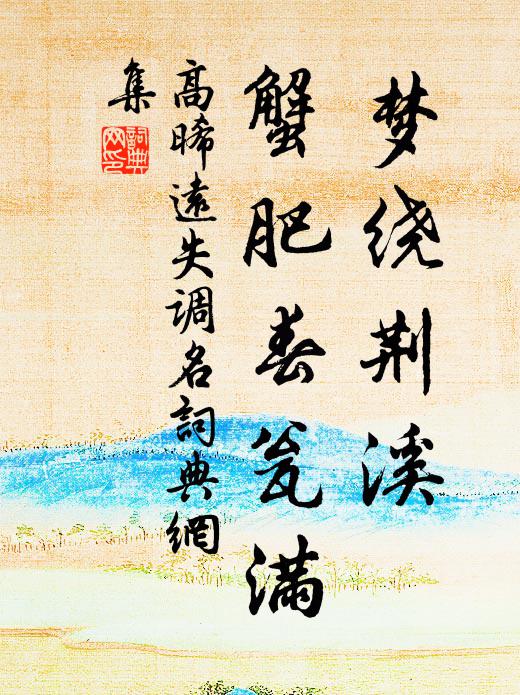 梦绕荆溪
蟹肥春瓮满
高晞远失调名詞典網
集
詞典网印